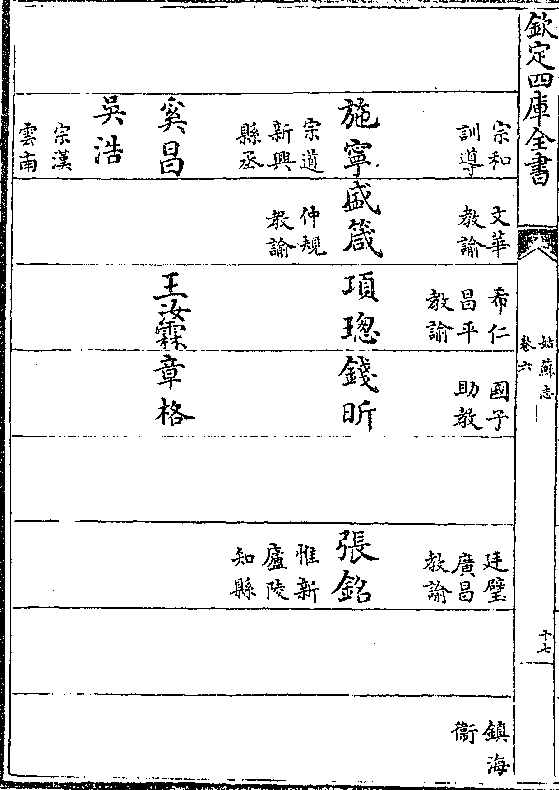 欽定四庫全書
姑蘇志
卷六
十七
宗和
訓導
施寧
宗道
新興
縣丞
奚昌
吳浩
宗漢
雲南
文華
教諭
盛箴
仲規
教諭
希仁
昌平
教諭
項璁
王汝霖
國子
助教
錢昕
章格
廷璧
廣昌
教諭
張銘
惟新
廬陵
知縣
鎮海
衞